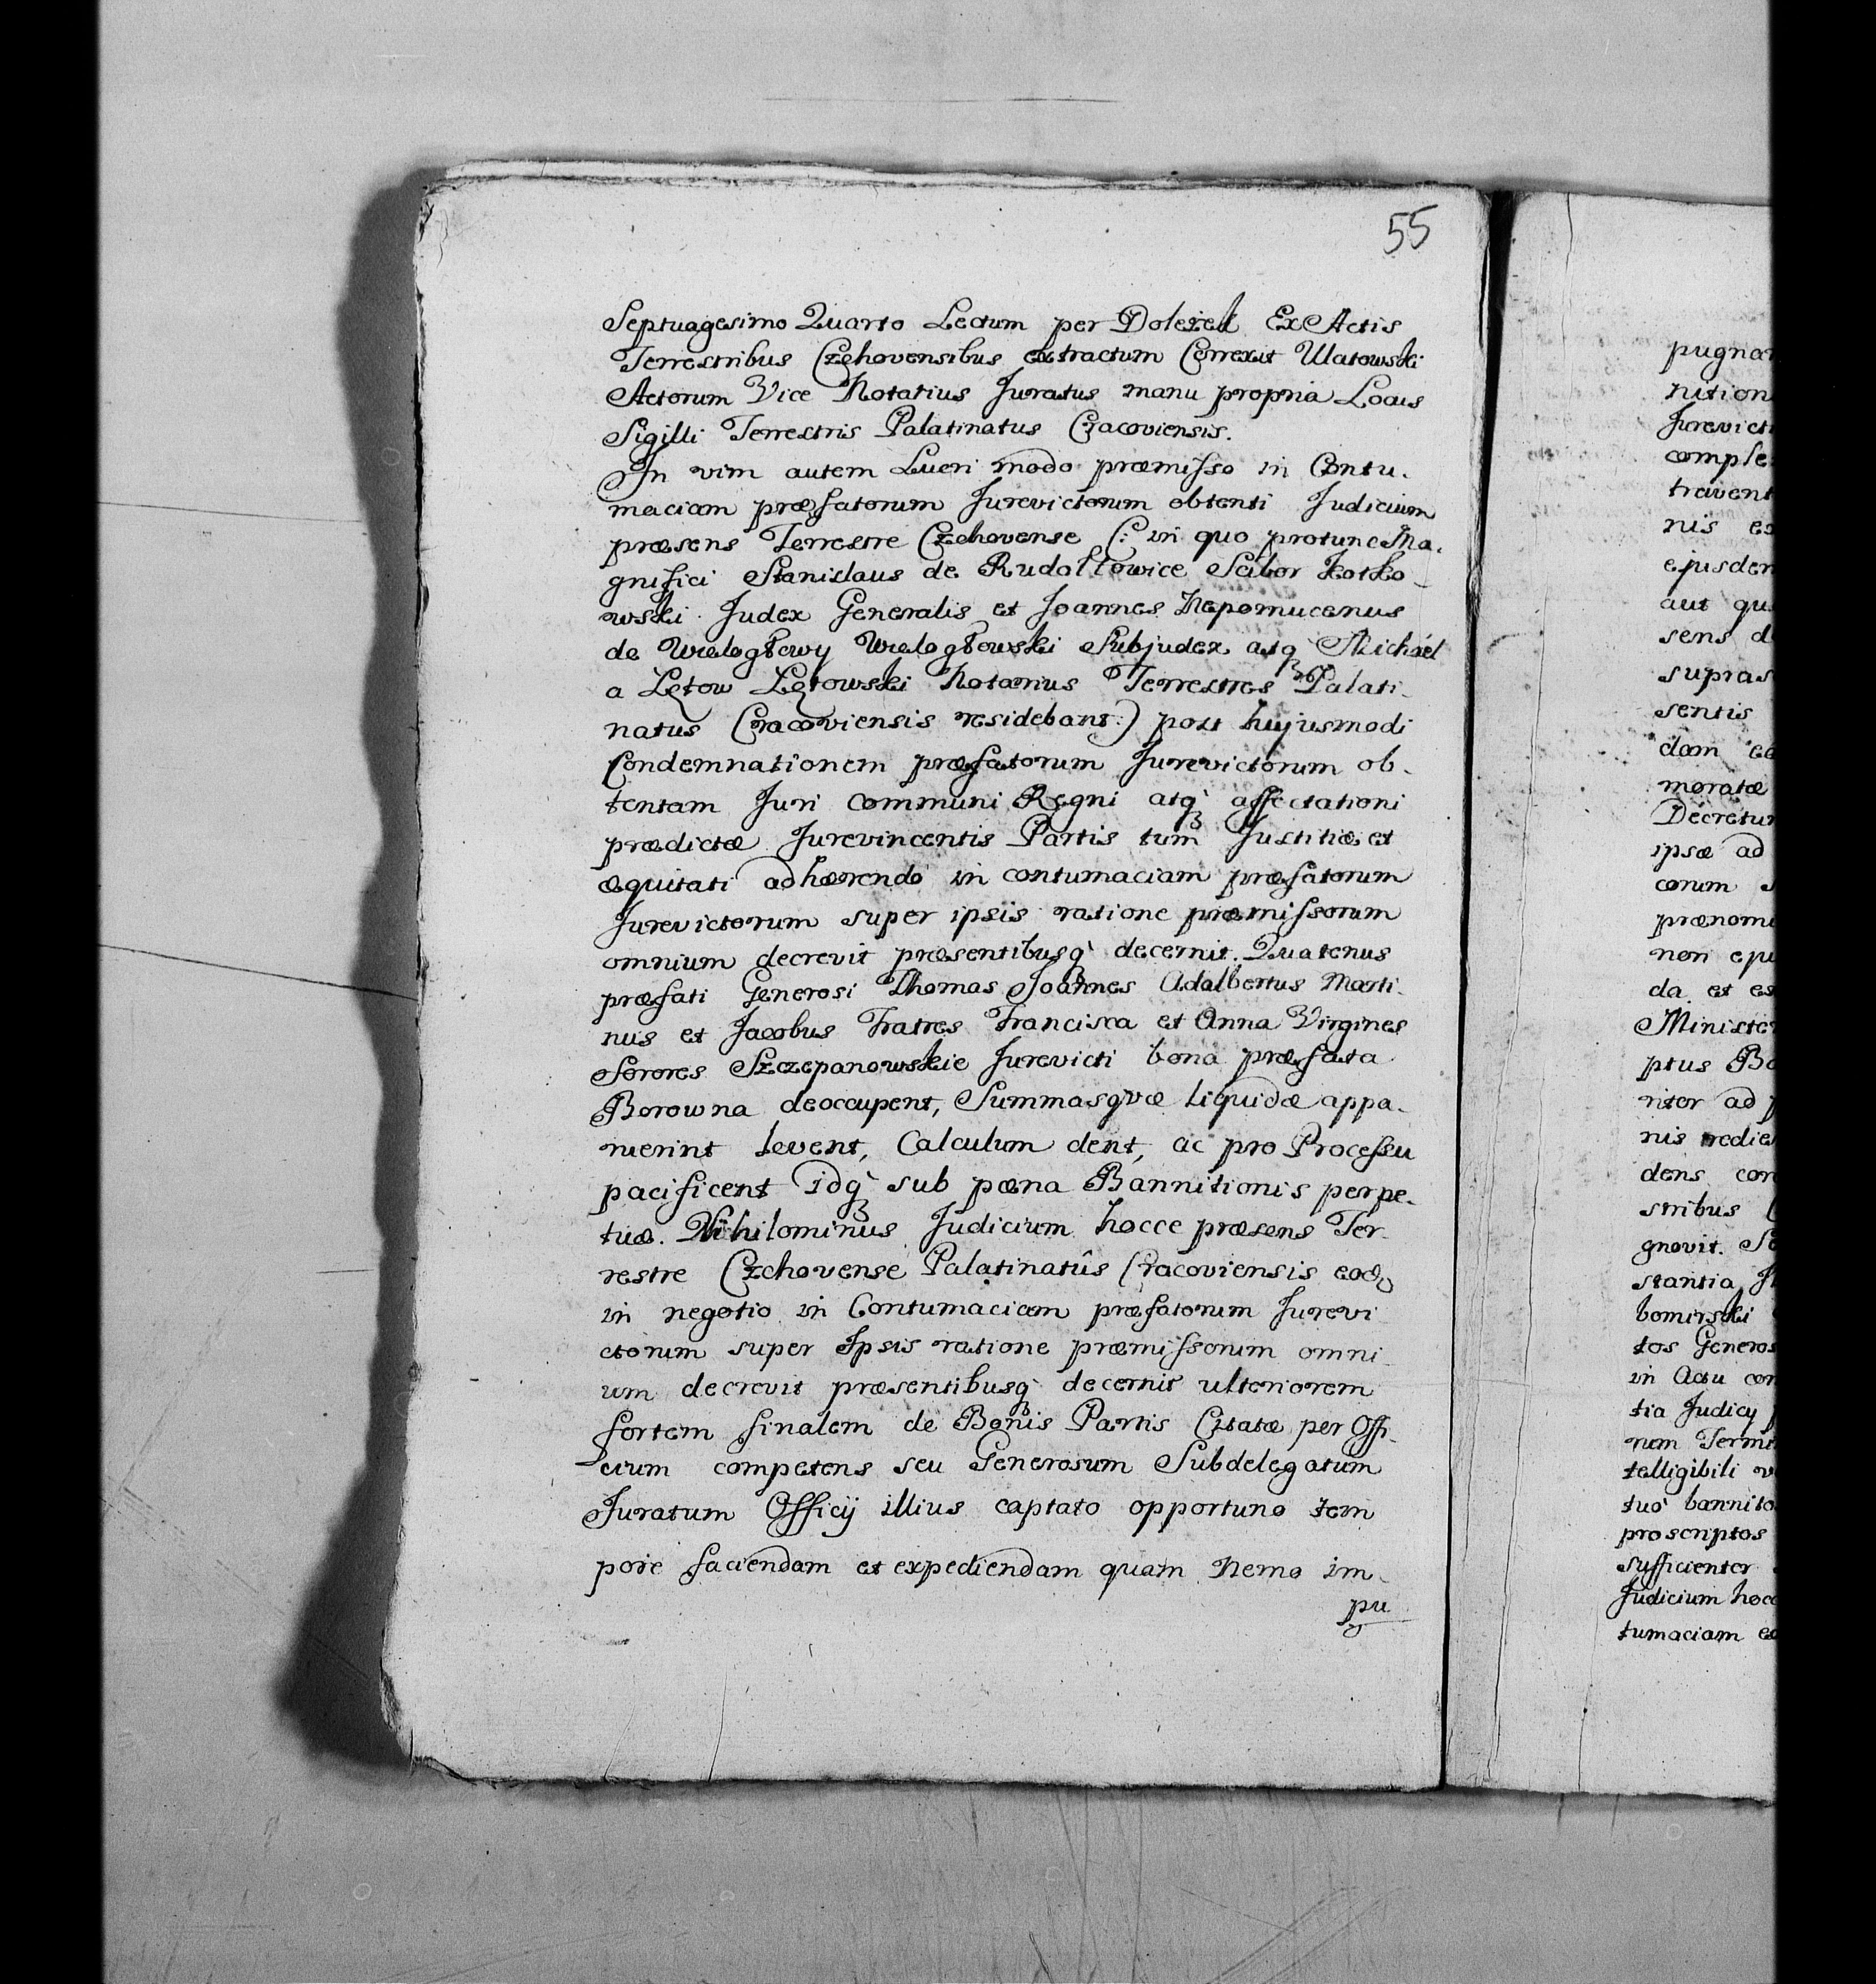 55
Septuagesimo Quarto Lectum per Doleżel Ex Actis
Terrestribus Czchovensibus extractum Correxit Ulatowski
Actorum Vice Notarius Juratus manu propria Locus
Sigilli Terrestris Palatinatus Cracoviensis.
In vim autem Lucri modo præmisso in Contu-
maciam præfatorum Jurevictorum obtenti Judicium
præsens Terrestre Czchovense (: in quo protunc Ma-
gnifici Stanislaus de Rudołtowice Scibor Kotko-
wski Judex Generalis et Joannes Nepomucenus
de Wielogłowy Wielogłowski Subjudex atq Michäel
a Łętow Łętowski Notarius Terrestres Palati-
natus Cracoviensis residebant:) post hujusmodi
Condemnationem præfatorum Jurevictorum ob-
tentam Juri communi Regni atq affectationi
prædictæ Jurevincentis Partis tum Justitiæ et
æquitati adhærendo in contumaciam præfatorum
Jurevictorum super ipsis ratione præmissorum
omnium decrevit præsentibusq decernit. Quatenus
præfati Generosi Thomas Joannes Adalbertus Marti-
nus et Jacobus Fratres Francisca et Anna Virgines
Sorores Szczepanowskie Jurevicti bona præfata
Borowna deoccupent, Summasqvæ liquidæ appa-
ruerint levent, Calculum dent, ac pro Processu
pacificent idq sub pæna Bannitionis perpe-
tuæ. Nihilominus Judicium hocce præsens Ter-
restre Czchovense Palatinatûs Cracoviensis eod
in negotio in Contumaciam præfatorum Jurevi
ctorum super Ipsis ratione præmissorum omni-
um decrevit præsentibusq decernit ulteriorem
fortem finalem de Bonis Partis Citatæ per Offi-
cium competens seu Generosum Subdelegatum
Juratum Officij illius captato opportuno tem
pore faciendam et expediendam quam Nemo im-
pu
pugna
nition
Jurevict
comple
nis
ejusde
aut qu
sens d
supras
sentis
dam
moratæ
Decretu
ipsæ ad
corum
prænom
non
da et
Ministe
ptus
ad
nis
dens con
stribus
gnovit.
stantia
bomirski
tos Generos
in Actu con
tia Judicy
nem Termi
telligibili
tuo bannito
proscriptos
sufficienter
Judicium hocc
tumaciam